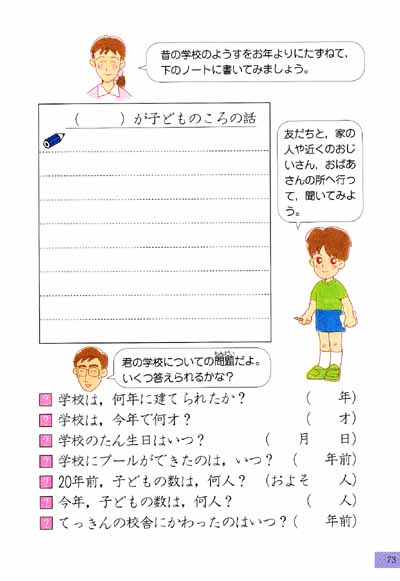 昔の学校のようすをお年よりにたずねて,
下のノートに書いてみましょう。
（　　　）が子どものころの話
友だちと，家の
人や近くのおじ
いさん，おばあ
さんの所へ行っ
て，聞いてみよ
う。
君の学校についての問題だよ。
もんだい
いくつ答えられるかな？
? 学校は，何年に建てられたか？（　　年）
? 学校は，今年で何才？（　　才）
? 学校のたん生日はいつ？（　　月　　日）
? 学校にプールができたのは，いつ？（　　年前）
? 20年前，子どもの数は，何人？（およそ　　人）
? 今年，子どもの数は，何人？（　　人）
? てっきんの校舎にかわったのはいつ？（　　年前）
73